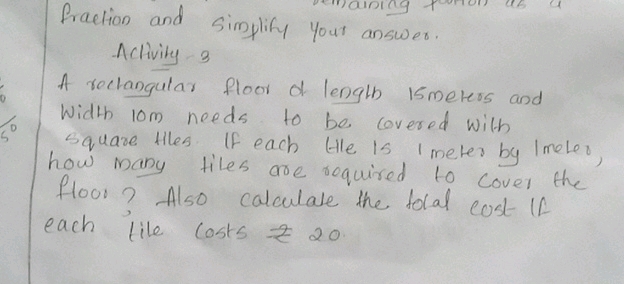 remaining portion as a
fraction and simplify your answer.
Activity - 3
A rectangular floor of length 15meters and
Width 10m needs to be covered with
square tiles. If each tile is 1 meter by 1meter,
how many tiles are required to cover the
floor? Also calculate the total cost if
each tile costs ₹ 20.